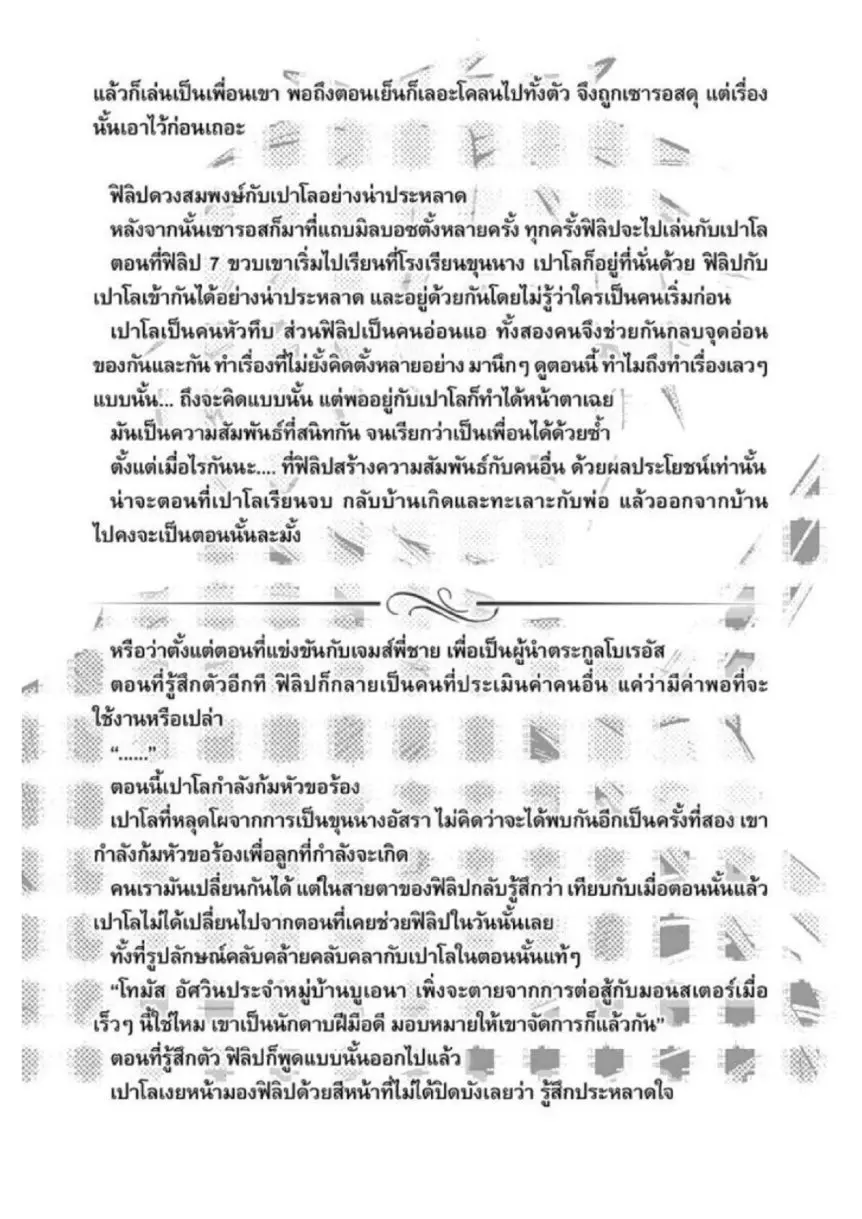 แล้วก็เล่นเป็นเพื่อนเขา พอถึงตอนเย็นก็เลอะโคลนไปทั้งตัว จึงถูกเซารอสดุ แต่เรื่อง
นั้นเอาไว้ก่อนเถอะ
ฟิลิปดวงสมพงษ์กับเปาโลอย่างน่าประหลาด
หลังจากนั้นเซารอสก็มาที่แถบมิลบอซตั้งหลายครั้ง ทุกครั้งฟิลิปจะไปเล่นกับเปาโล
ตอนที่ฟิลิป 7 ขวบเขาเริ่มไปเรียนที่โรงเรียนขุนนาง เปาโลก็อยู่ที่นั่นด้วย ฟิลิปกับ
เปาโลเข้ากันได้อย่างน่าประหลาด และอยู่ด้วยกันโดยไม่รู้ว่าใครเป็นคนเริ่มก่อน
เปาโลเป็นคนหัวทึบ ส่วนฟิลิปเป็นคนอ่อนแอ ทั้งสองคนจึงช่วยกันกลบจุดอ่อน
ของกันและกัน ทำเรื่องที่ไม่ยั้งคิดตั้งหลายอย่าง มานึกๆ ดูตอนนี้ ทำไมถึงทำเรื่องเลวๆ
แบบนั้น... ถึงจะคิดแบบนั้น แต่พออยู่กับเปาโลก็ทำได้หน้าตาเฉย
มันเป็นความสัมพันธ์ที่สนิทกัน จนเรียกว่าเป็นเพื่อนได้ด้วยซ้ำ
ตั้งแต่เมื่อไรกันนะ.... ที่ฟิลิปสร้างความสัมพันธ์กับคนอื่น ด้วยผลประโยชน์เท่านั้น
น่าจะตอนที่เปาโลเรียนจบ กลับบ้านเกิดและทะเลาะกับพ่อ แล้วออกจากบ้าน
ไปคงจะเป็นตอนนั้นละมั้ง
หรือว่าตั้งแต่ตอนที่แข่งขันกับเจมส์พี่ชาย เพื่อเป็นผู้นำตระกูลโบเรอัส
ตอนที่รู้สึกตัวอีกที ฟิลิปก็กลายเป็นคนที่ประเมินค่าคนอื่น แค่ว่ามีค่าพอที่จะ
ใช้งานหรือเปล่า
“......”
ตอนนี้เปาโลกำลังก้มหัวขอร้อง
เปาโลที่หลุดโผจากการเป็นขุนนางอัสรา ไม่คิดว่าจะได้พบกันอีกเป็นครั้งที่สอง เขา
กำลังก้มหัวขอร้องเพื่อลูกที่กำลังจะเกิด
คนเรามันเปลี่ยนกันได้ แต่ในสายตาของฟิลิปกลับรู้สึกว่า เทียบกับเมื่อตอนนั้นแล้ว
เปาโลไม่ได้เปลี่ยนไปจากตอนที่เคยช่วยฟิลิปในวันนั้นเลย
ทั้งที่รูปลักษณ์คลับคล้ายคลับคลากับเปาโลในตอนนั้นแท้ๆ
“โทมัส อัศวินประจำหมู่บ้านบูเอนา เพิ่งจะตายจากการต่อสู้กับมอนสเตอร์เมื่อ
เร็วๆ นี้ใช่ไหม เขาเป็นนักดาบฝีมือดี มอบหมายให้เขาจัดการก็แล้วกัน”
ตอนที่รู้สึกตัว ฟิลิปก็พูดแบบนั้นออกไปแล้ว
เปาโลเงยหน้ามองฟิลิปด้วยสีหน้าที่ไม่ได้ปิดบังเลยว่า รู้สึกประหลาดใจ